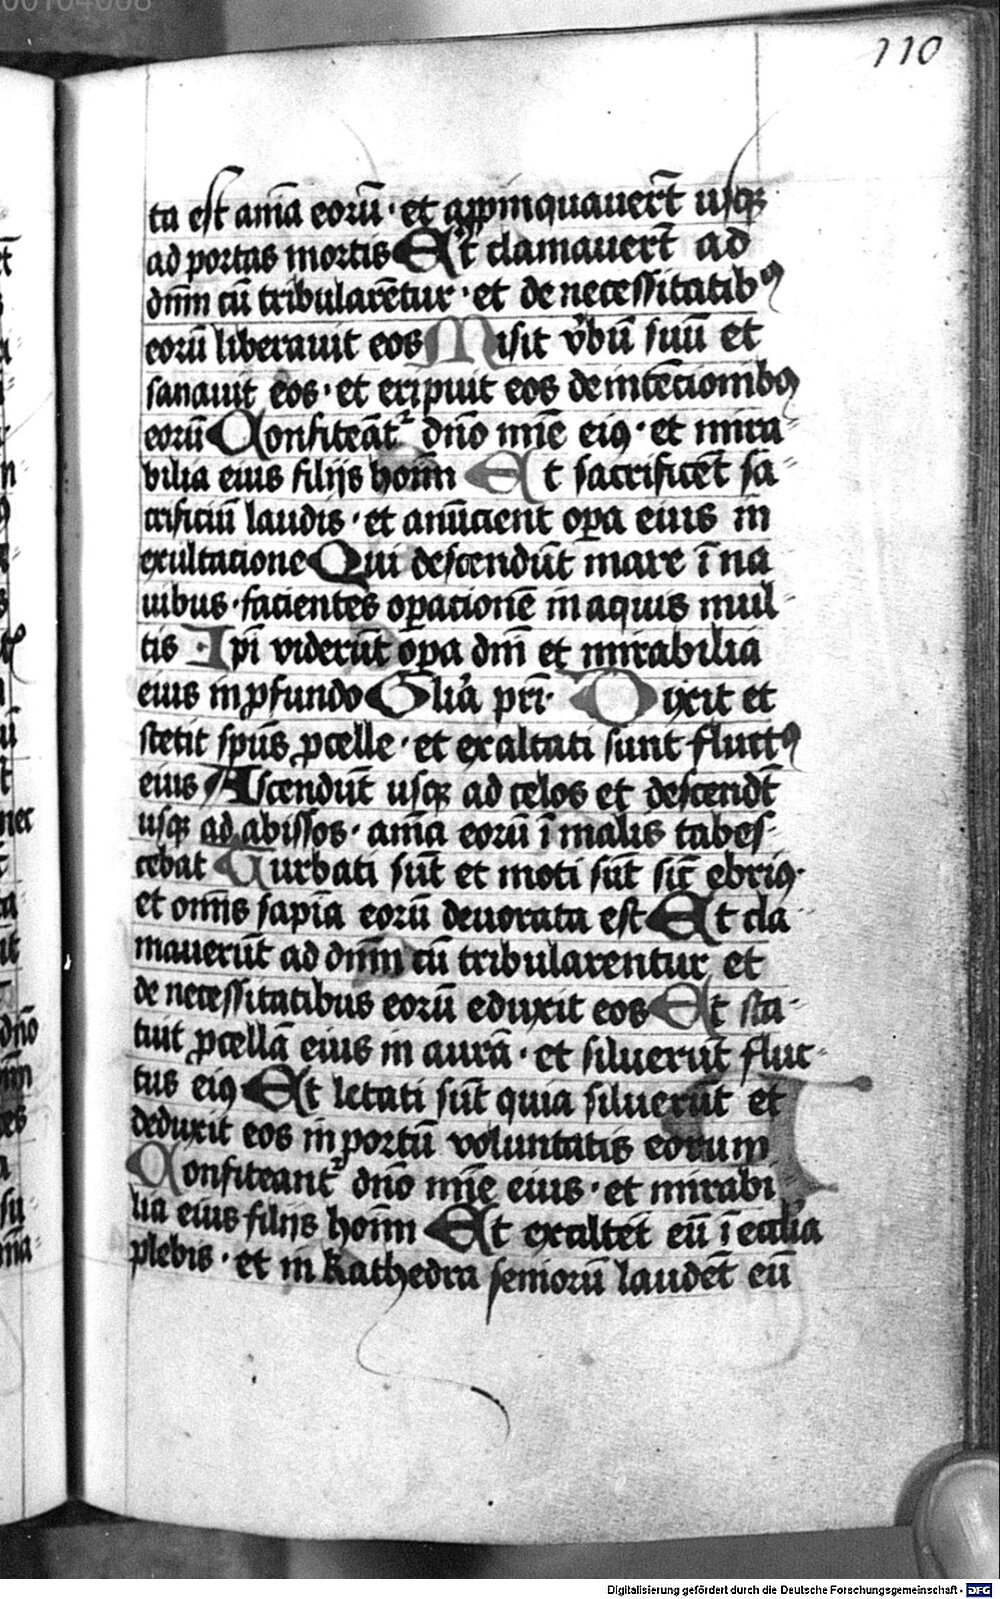 110
ta est aīa eorū · et appīnquauer̄t usqꝫ
ad portas mortis Et clamauer̄t ad
dn̄m cū tribularētur · et de necessitatibꝰ
eorū liberauit eos Misit v̓bū suū et
sanauit eos · et eripuit eos de intēcionibꝰ
eorū Confiteāt᷑ dn̄o mīe eiꝰ · et mira
bilia eius filijs hoīm Et sacrificēt sa
crificiū laudis · et anūcient oꝑa eius in
exultacione Qui descendūt mare ī na
uibus · facientes oꝑacionē in aquis mul
tis Ip̄i viderūt oꝑa dn̄i et mirabilia
eius in ꝓfundo Gl̓ia pr̄i · Dixit et
stetit sp̄us ꝓcelle · et exaltati sunt fluctꝰ
eius Ascendūt usqꝫ ad celos et descendūt
usqꝫ ad abissos · aīa eorū ī malis tabes
cebat Turbati sūt et moti sūt sic̄ ebriꝰ ·
et om̄is sapīa eorū deuorata est Et cla
mauerūt ad dn̄m cū tribularentur et
de necessitatibus eorū eduxit eos Et sta
tuit ꝓcellā eius in aurā · et siluerūt fluc
tus eiꝰ Et letati sūt quia siluerūt et
deduxit eos in portū voluntatis eorum
Confiteant᷑ dn̄o mīe eius · et mirabi
lia eius filijs hoīm Et exaltēt eū ī eccl̓ia
plebis · et in kathedra seniorū laudēt eū
Digitalisierung gefördert durch die Deutsche Forschungsgemeinschaft - DFG